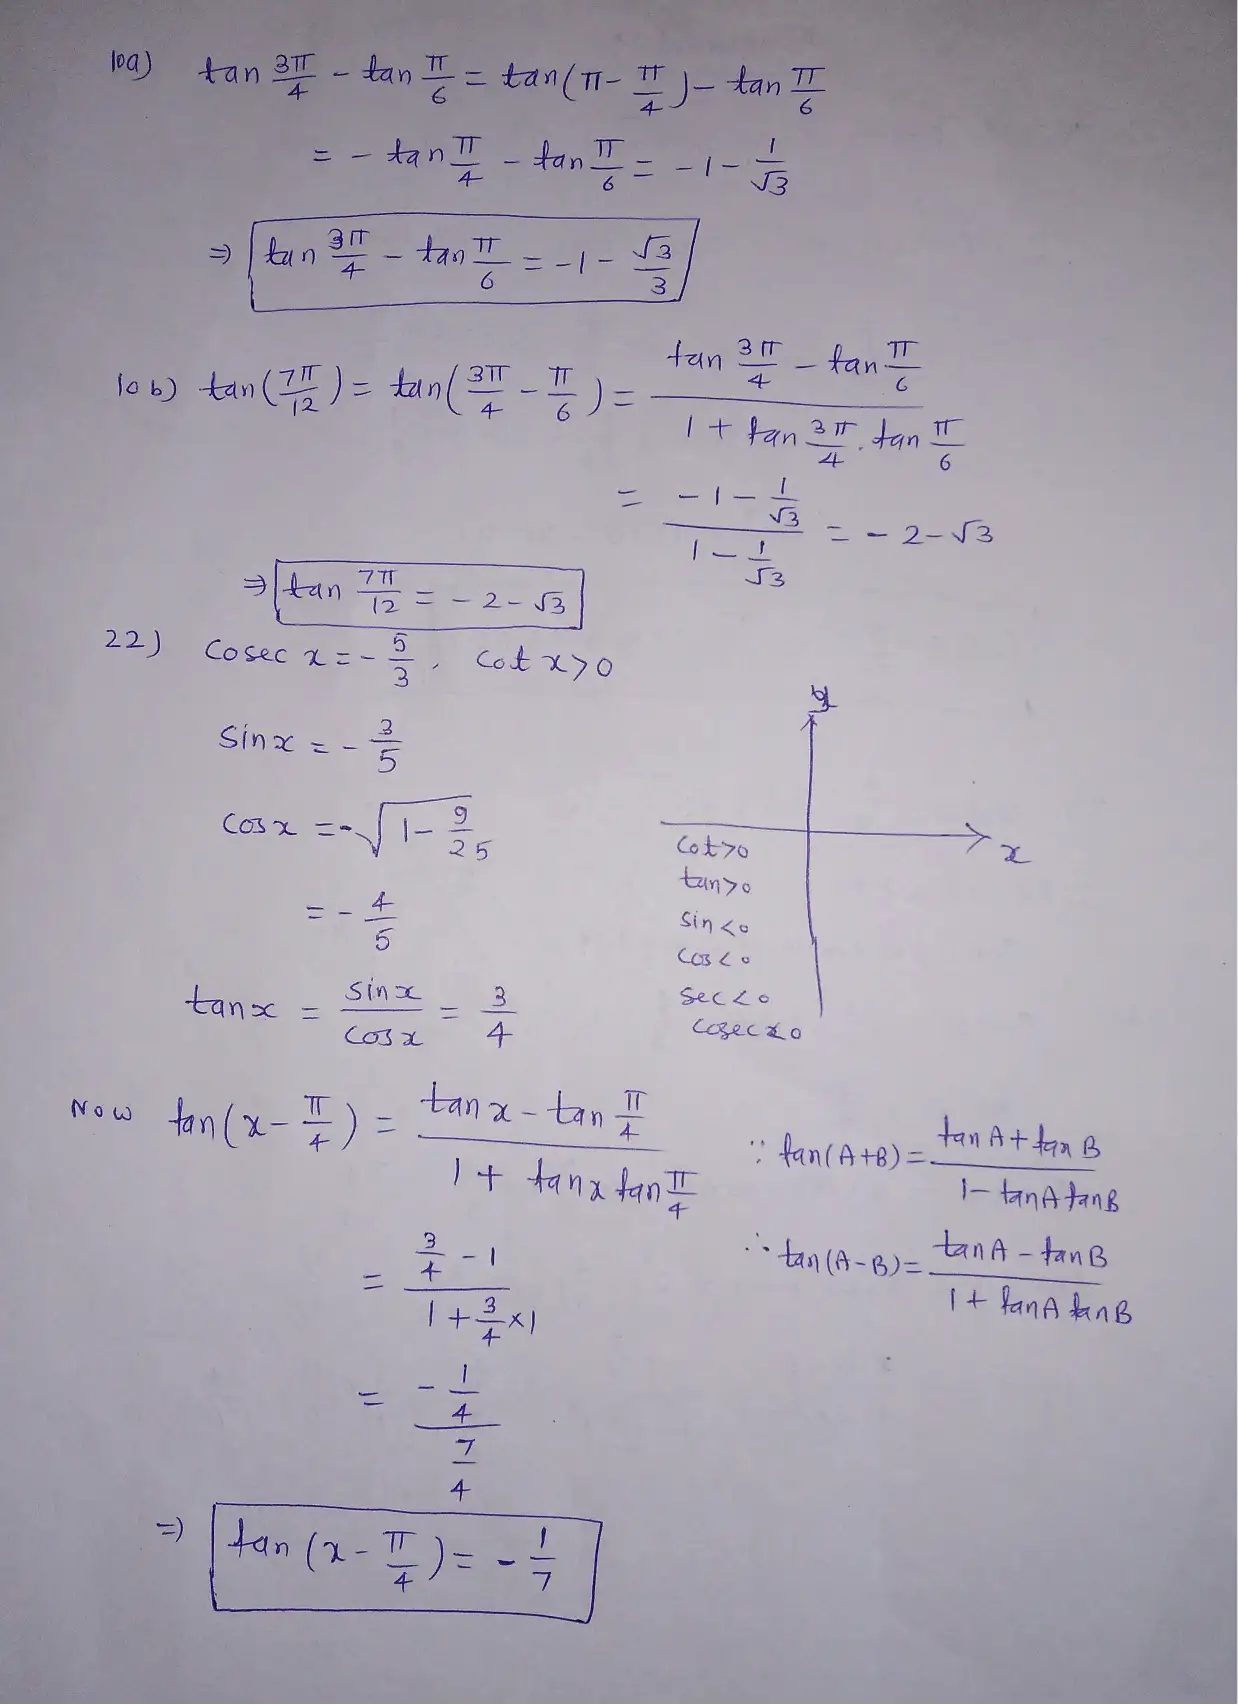 10a) tan 3π/4 - tan π/6 = tan(π - π/4) - tan π/6
= - tan π/4 - tan π/6 = -1 - 1/√3
⇒ tan 3π/4 - tan π/6 = -1 - √3/3
10b) tan(7π/12) = tan(3π/4 - π/6) = (tan 3π/4 - tan π/6)/(1 + tan 3π/4 . tan π/6)
= (-1 - 1/√3)/(1 - 1/√3) = -2-√3
⇒ tan 7π/12 = -2-√3
22) Cosec x = -5/3, Cot x>0
Sin x = -3/5
Cos x = -√(1 - 9/25)
= -4/5
y
x
Cot>0
tan>0
Sin<0
Cos<0
Sec<0
Cosec<0
tan x = Sin x/Cos x = 3/4
Now tan(x - π/4) = (tan x - tan π/4)/(1 + tan x tan π/4)
∵ tan(A+B) = (tan A + tan B)/(1 - tan A tan B)
= (3/4 - 1)/(1 + 3/4 × 1)
∴ tan(A-B) = (tan A - tan B)/(1 + tan A tan B)
= (-1/4)/(7/4)
⇒ tan(x - π/4) = -1/7